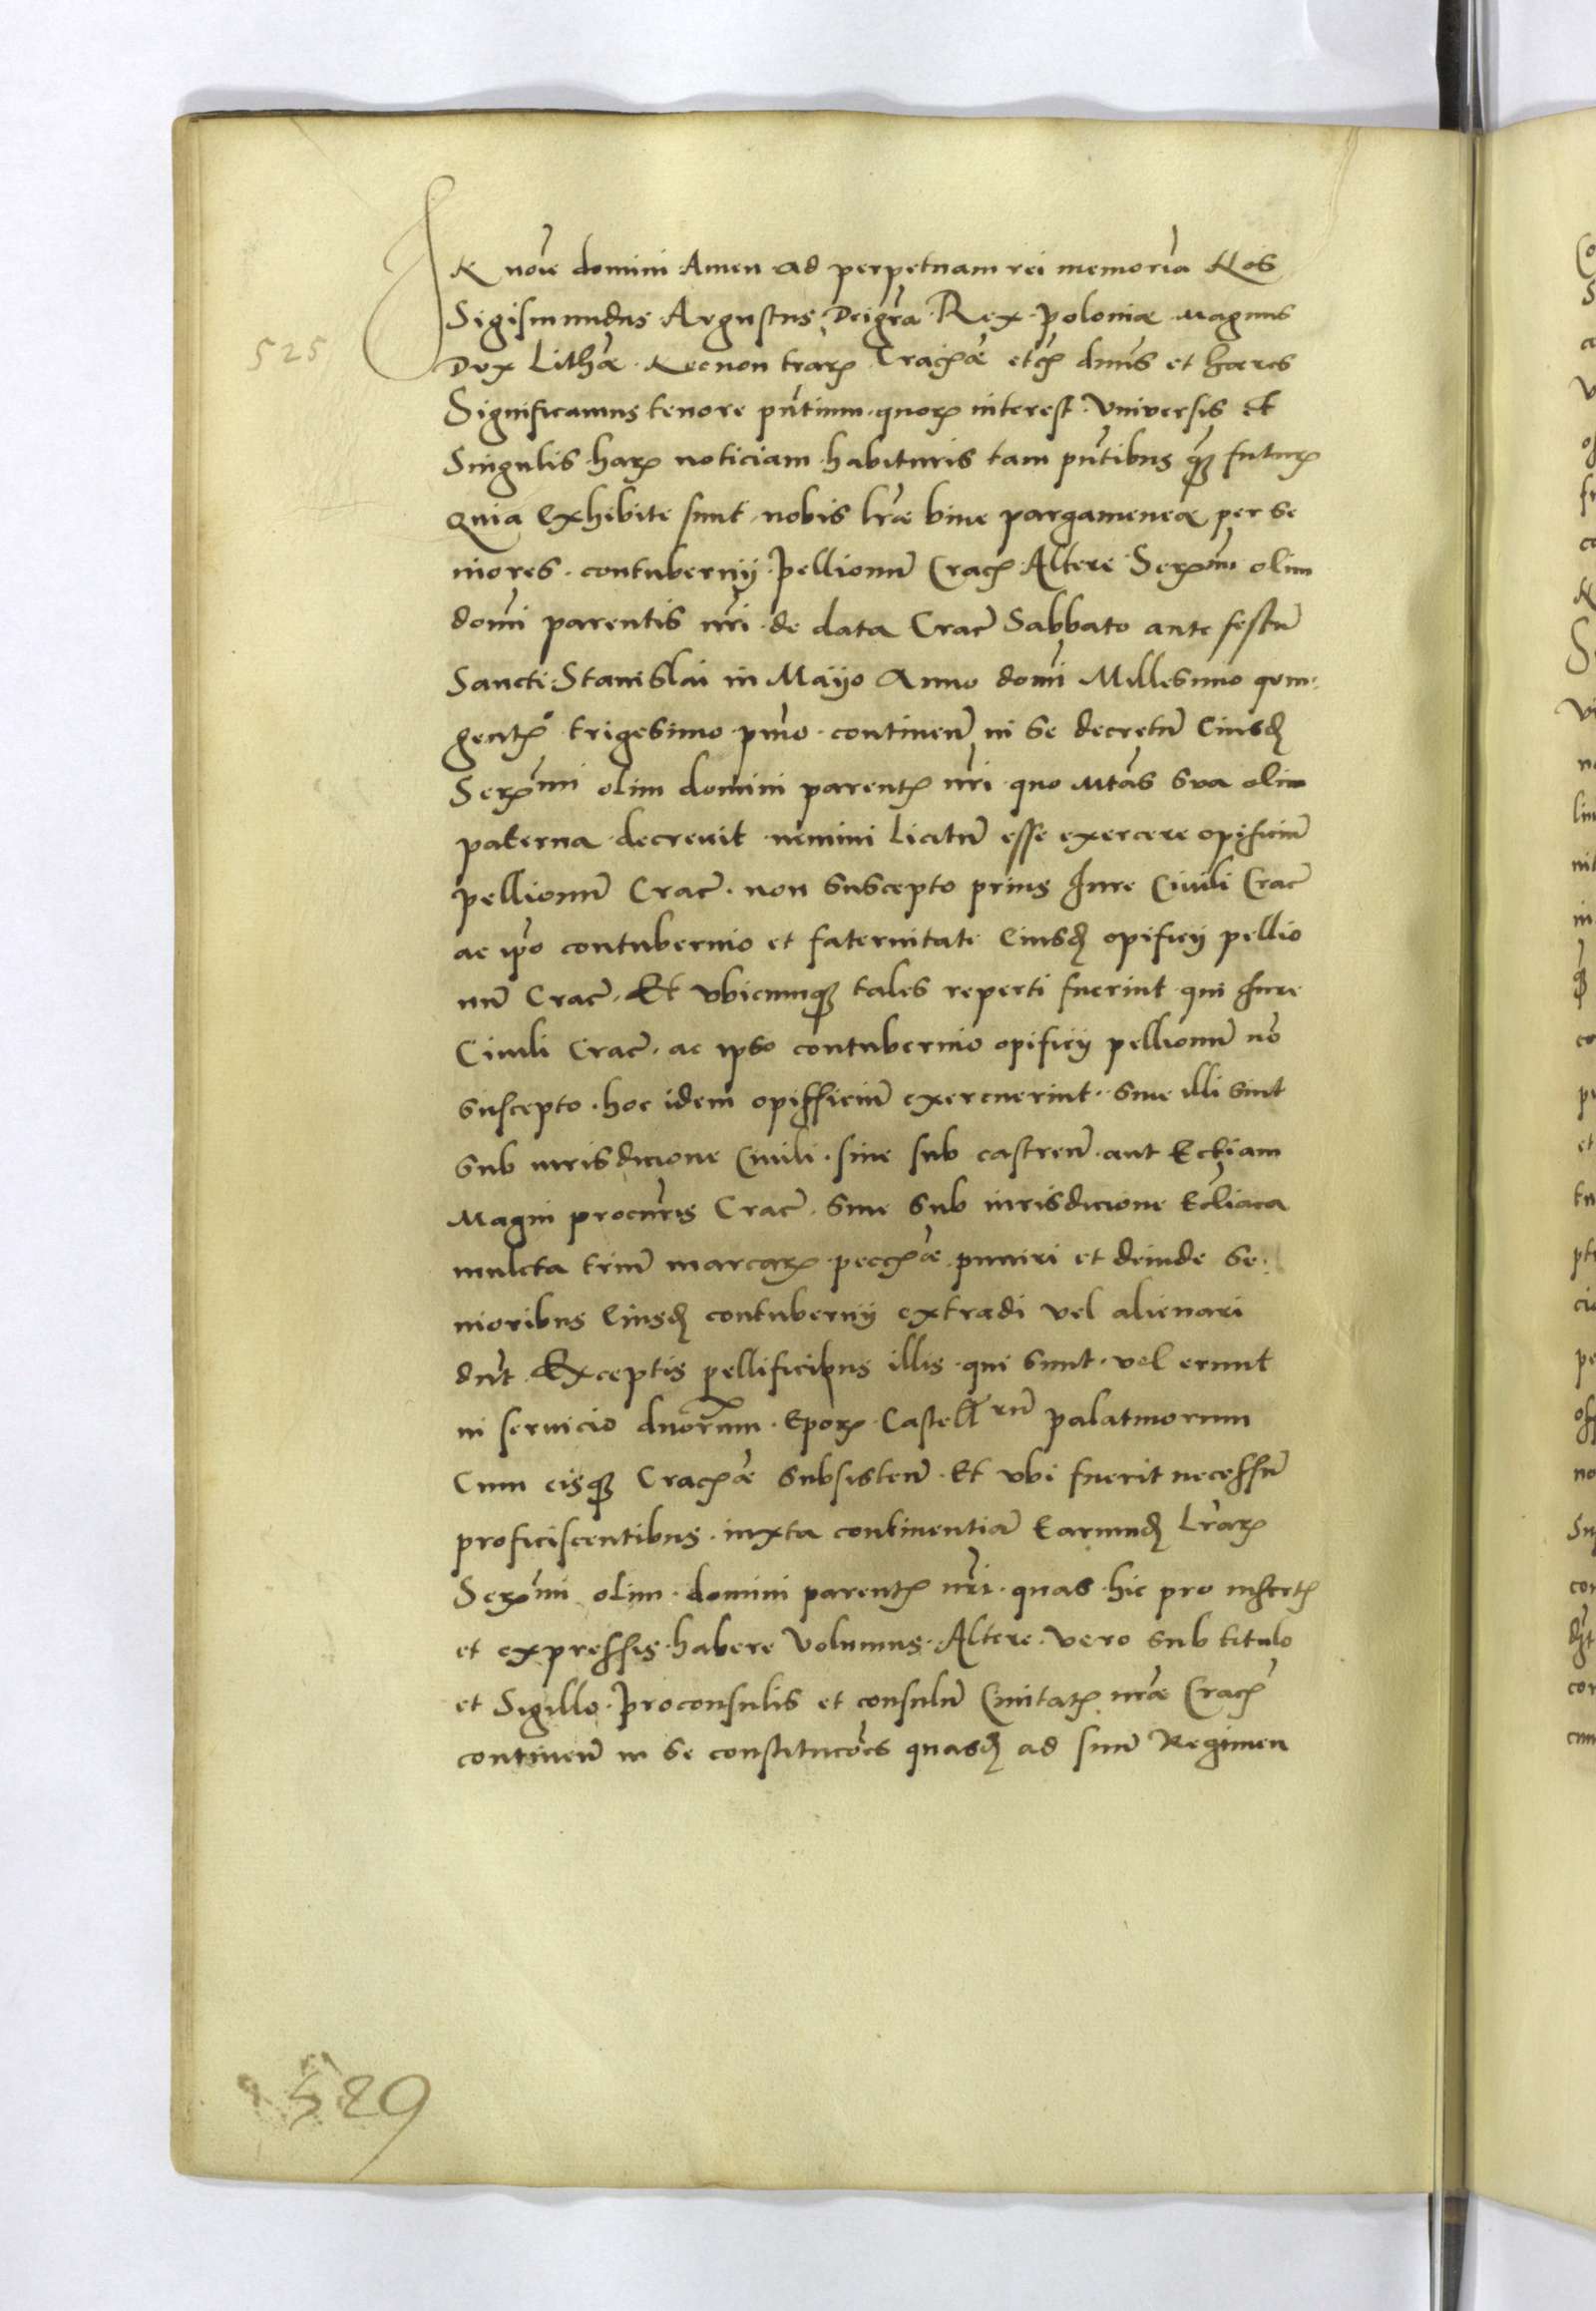 IN noīe domini Amen ad perpetuam rei memoriā Nos
Sigismundus Avgustus Dei gr̄a Rex poloniæ Magnus
525
Dux Lithæ Necnon trarꝫ Cracꝫæ etcꝫ dn̄us et hæres
Significamus tenore pn̄tium quorꝫ interest Universis et
Singulis harꝫ noticiam habituris tam pn̄tibus qꝫ futurꝫ
Quia Exhibite sunt nobis lræ bine pargameneæ per se
niores contubernij Pellionū Cracꝫ Altere Serꝫmi olim
domī parentis nr̄i de data Crac̄ Sabbato ante festū
Sancti Stanislai in Maijo Anno domī Millesimo quin-
gentꝫo trigesimo pm̄o continen̄ in se decretū Eiusdꝫ
Serꝫmi olim domini parentꝫ nr̄i quo Mtās sua olim
paterna decreuit nemini licitū esse exercere opificiū
pellionū Crac̄ non suscepto prius Jure Ciuili Crac̄
ac ip̄o contubernio et faternitate Eiusdꝫ opificij pellio
nū Crac̄ Et vbicunqꝫ tales reperti fuerint qui Jure
Ciuili Crac̄ ac ipso contubernio opificij pellionū nō
suscepto hoc idem opifficiū exercuerint siue illi sint
sub iurisdicione Ciuili siue sub castren̄ aut Ectiam
Magni procur̄is Crac̄ siue sub iurisdicione Eccl̄iaca
mulcta triū marcarꝫ peccꝫæ puniri et deinde se-
nioribus Eiusdꝫ contubernij extradi vel alienari
dn̄t Exceptis pellificibus illis qui sunt vel erunt
in seruicio dnorum Eporꝫ Castell̄rū palatinorum
Cum eisqꝫ Cracꝫæ subsisten̄ Et vbi fuerit necessū
proficiscentibus iuxta continentiā Earundꝫ Lrarꝫ
Serꝫmi olim domini parentꝫ nr̄i quas hic pro insertꝫ
et expressis habere Volumus Altere vero sub titulo
et Sigillo Proconsulis et consulū Ciuitatꝫ nræ Cracꝫ
continen̄ in se constitucōes quasdꝫ ad suū Regimen
529